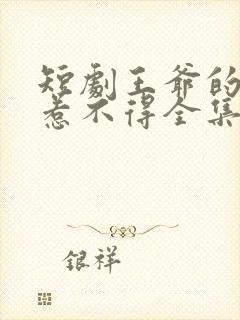 短劇王爺的
惹不得全集
銀祥